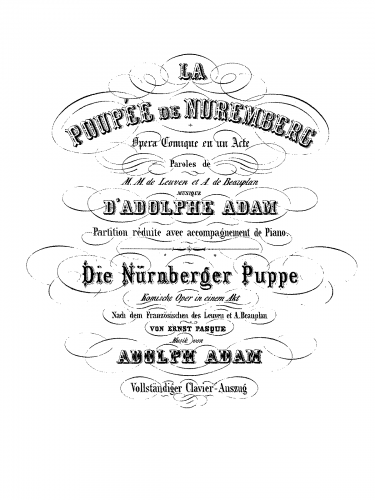 LA
POUPÉE DE NUREMBERG
Opera Comique en un Acte
Paroles de
M. M. de Leuven et A. de Beauplan
MUSIQUE
D'ADOLPHE ADAM
Partition réduite avec accompagnement de Piano
Die Nürnberger Puppe
Komische Oper in einem Akt
Nach dem Französischen des Leuven et A. Beauplan
VON ERNST PASQUE
Musik von
ADOLPH ADAM
Vollständiger Clavier-Auszug